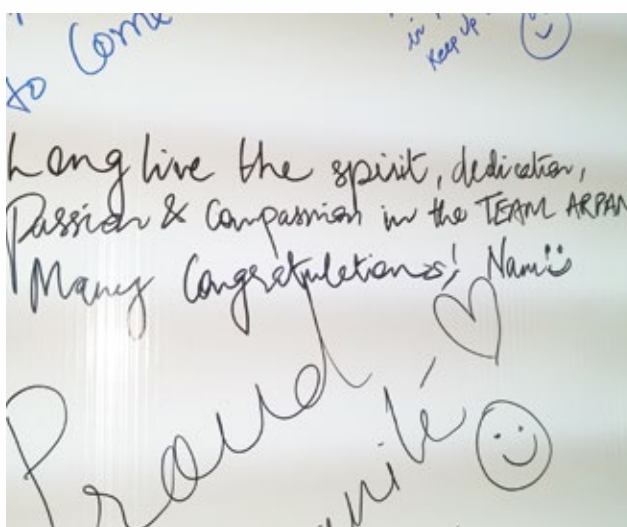 to Come
in
Keep Up
Long live the spirit, dedication,
Passion & Compassion in the TEAM ARPAN
Many Congratulations! Nami
Proud